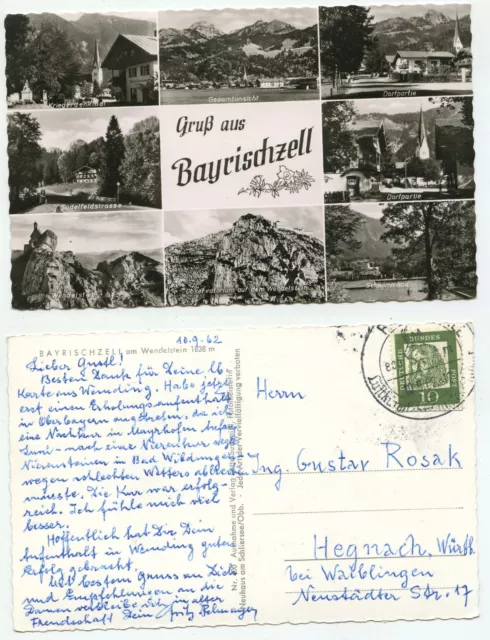 Kriegerdenkmal
Gesamtansicht
Dorfpartie
Gruß aus
Bayrischzell
Sudelfeldstrasse
Dorfpartie
Wendelstein
Observatorium auf dem Wendelstein
10.9.62
BAYRISCHZELL am Wendelstein 1838 m
Lieber Gustl!
Besten Dank für Deine lb.
Karte aus Wemding. Habe jetzt
erst einen Erholungsaufenthalt
in Oberbayern angetreten, da ich
eine Nachkur in Mayrhofen Anfang
Juni - nach einer Nierenkur wegen
Nierensteinen in Bad Wildungen
wegen schlechten Wetters abbrechen
musste. Die Kur war erfolg-
reich. Ich fühle mich viel
besser.
Hoffentlich hat Dir Dein
Aufenthalt in Wemding guten
Erfolg gebracht.
Mit bestem Gruss an Dich
und Empfehlungen an die
Damen verbleibe ich in alter
Freundschaft Dein Fritz
Nr. Aufnahme und Verlag
Neuhaus am Schliersee/Obb. - Jede Art der Vervielfältigung verboten
DEUTSCHE BUNDESPOST
10
Herrn
Ing. Gustav Rosak
Hegnach, Württ.
bei Waiblingen
Neustädter Str. 17